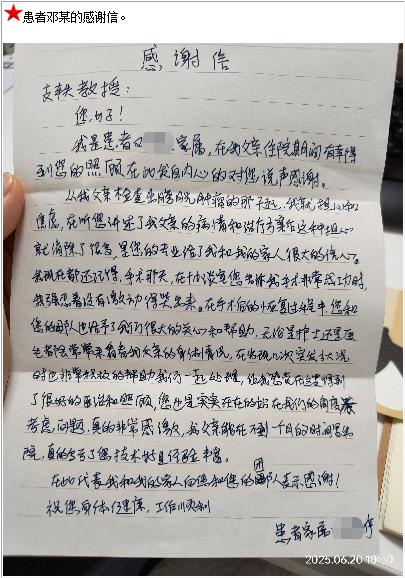 ★患者邓某的感谢信。
感谢信
支轶教授:
您好!
我是患者邓 家属,在我父亲住院期间有幸得
到您的照顾在此发自内心的对您说声感谢。
从我父亲检查出膀胱肿瘤的那天起,我就担心和
焦虑,在听您讲述了我父亲的病情和治疗方案后这种担心
就消除了很多,是您的专业给了我和我的家人很大的信心。
我现在都还记得,手术那天,在 您告诉我手术非常成功时,
我强忍着没有激动得哭出来。在手术后的恢复过程中,您和
您的团队也给予了我们很大的关心和帮助,无论是护士还是医
生都会常常来看看我父亲的身体情况,在出现几次突发状况
时也非常积极的帮助我们一起处理,让我感觉在这里得到
了很好的 和照顾,您也是实实在在的站在我们的角度来
考虑问题,真的非常感激,我父亲能在不到一个月的时间里出
院,真的 了您技术 经验丰富。
在此代表我和我的家人向您和您的团队表示感谢!
祝您身体健康,工作顺利
患者家属
2025.06.20 10:50